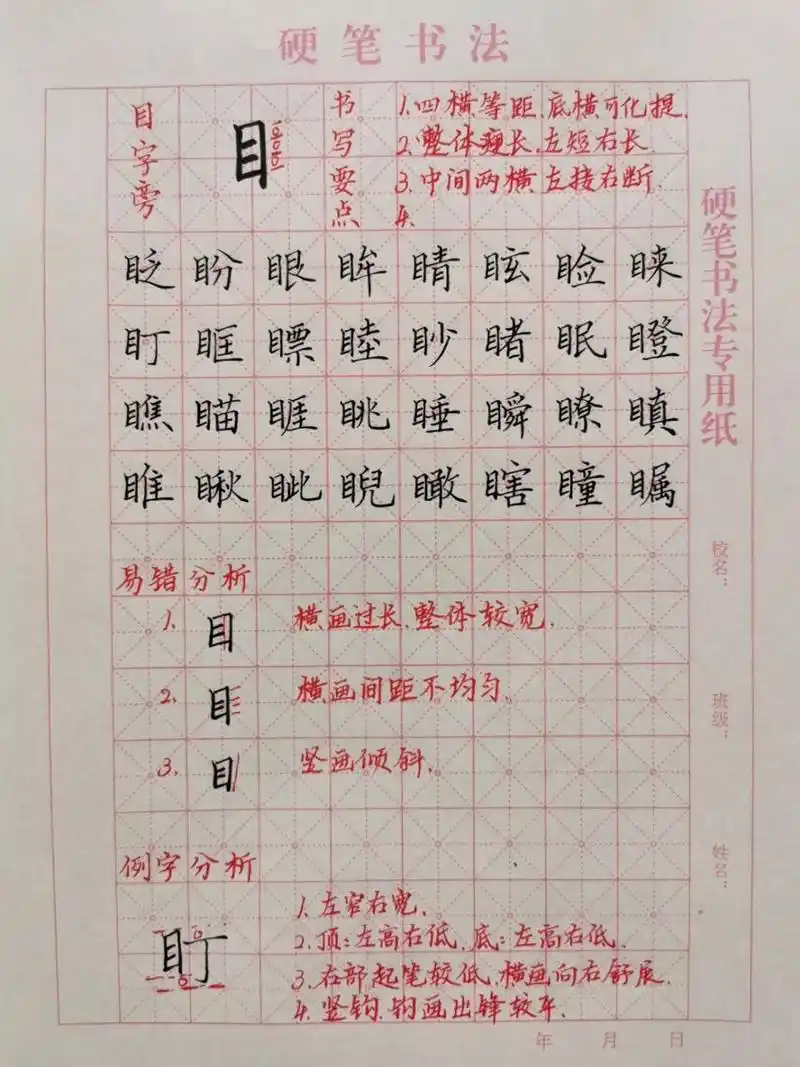 硬笔书法
目字旁
目
书写要点
1.四横等距、底横可化提.
2.整体瘦长、左短右长.
3.中间两横左接右断.
4.
眨盼眼眸睛眩睑睐
盯眶瞟睦眇睹眠瞪
瞧瞄睚眺睡瞬瞭瞋
睢瞅眦睨瞰瞎瞳瞩
易错分析
1. 目 横画过长、整体较宽.
2. 目 横画间距不均匀.
3. 目 竖画倾斜.
例字分析
盯
1.左窄右宽.
2.顶:左高右低、底:左高右低.
3.右部起笔较低、横画向右舒展.
4.竖钩、钩画出锋较平.
硬笔书法专用纸
校名:
班级:
姓名:
年 月 日